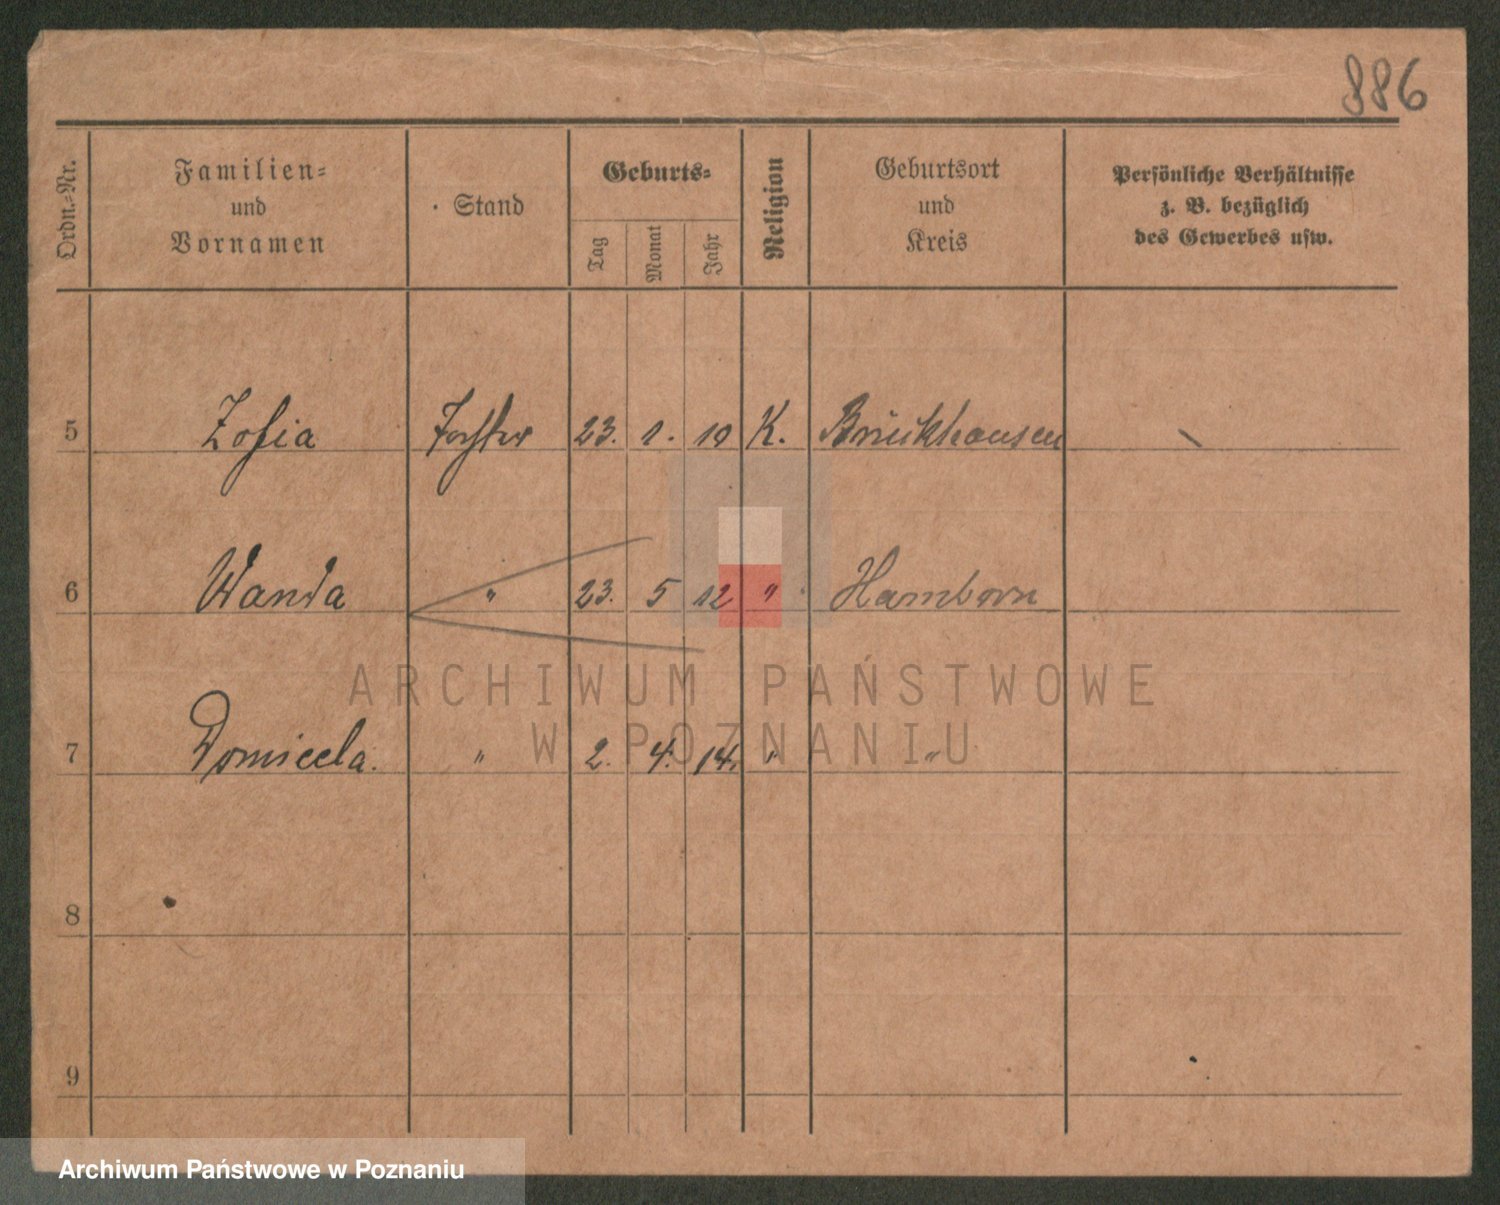 886
Ordn.-Nr.
Familien-
und
Vornamen
Stand
Geburts-
Tag
Monat
Jahr
Religion
Geburtsort
und
Kreis
Persönliche Verhältnisse
z. B. bezüglich
des Gewerbes usw.
5 Zofia Tochter 23. 1. 10 K. Bruckhausen
6 Wanda " 23. 5 12 " Hamborn
ARCHIWUM PAŃSTWOWE
W POZNANIU
7 Domicela. " 2. 4. 14. " "
8
9
Archiwum Państwowe w Poznaniu